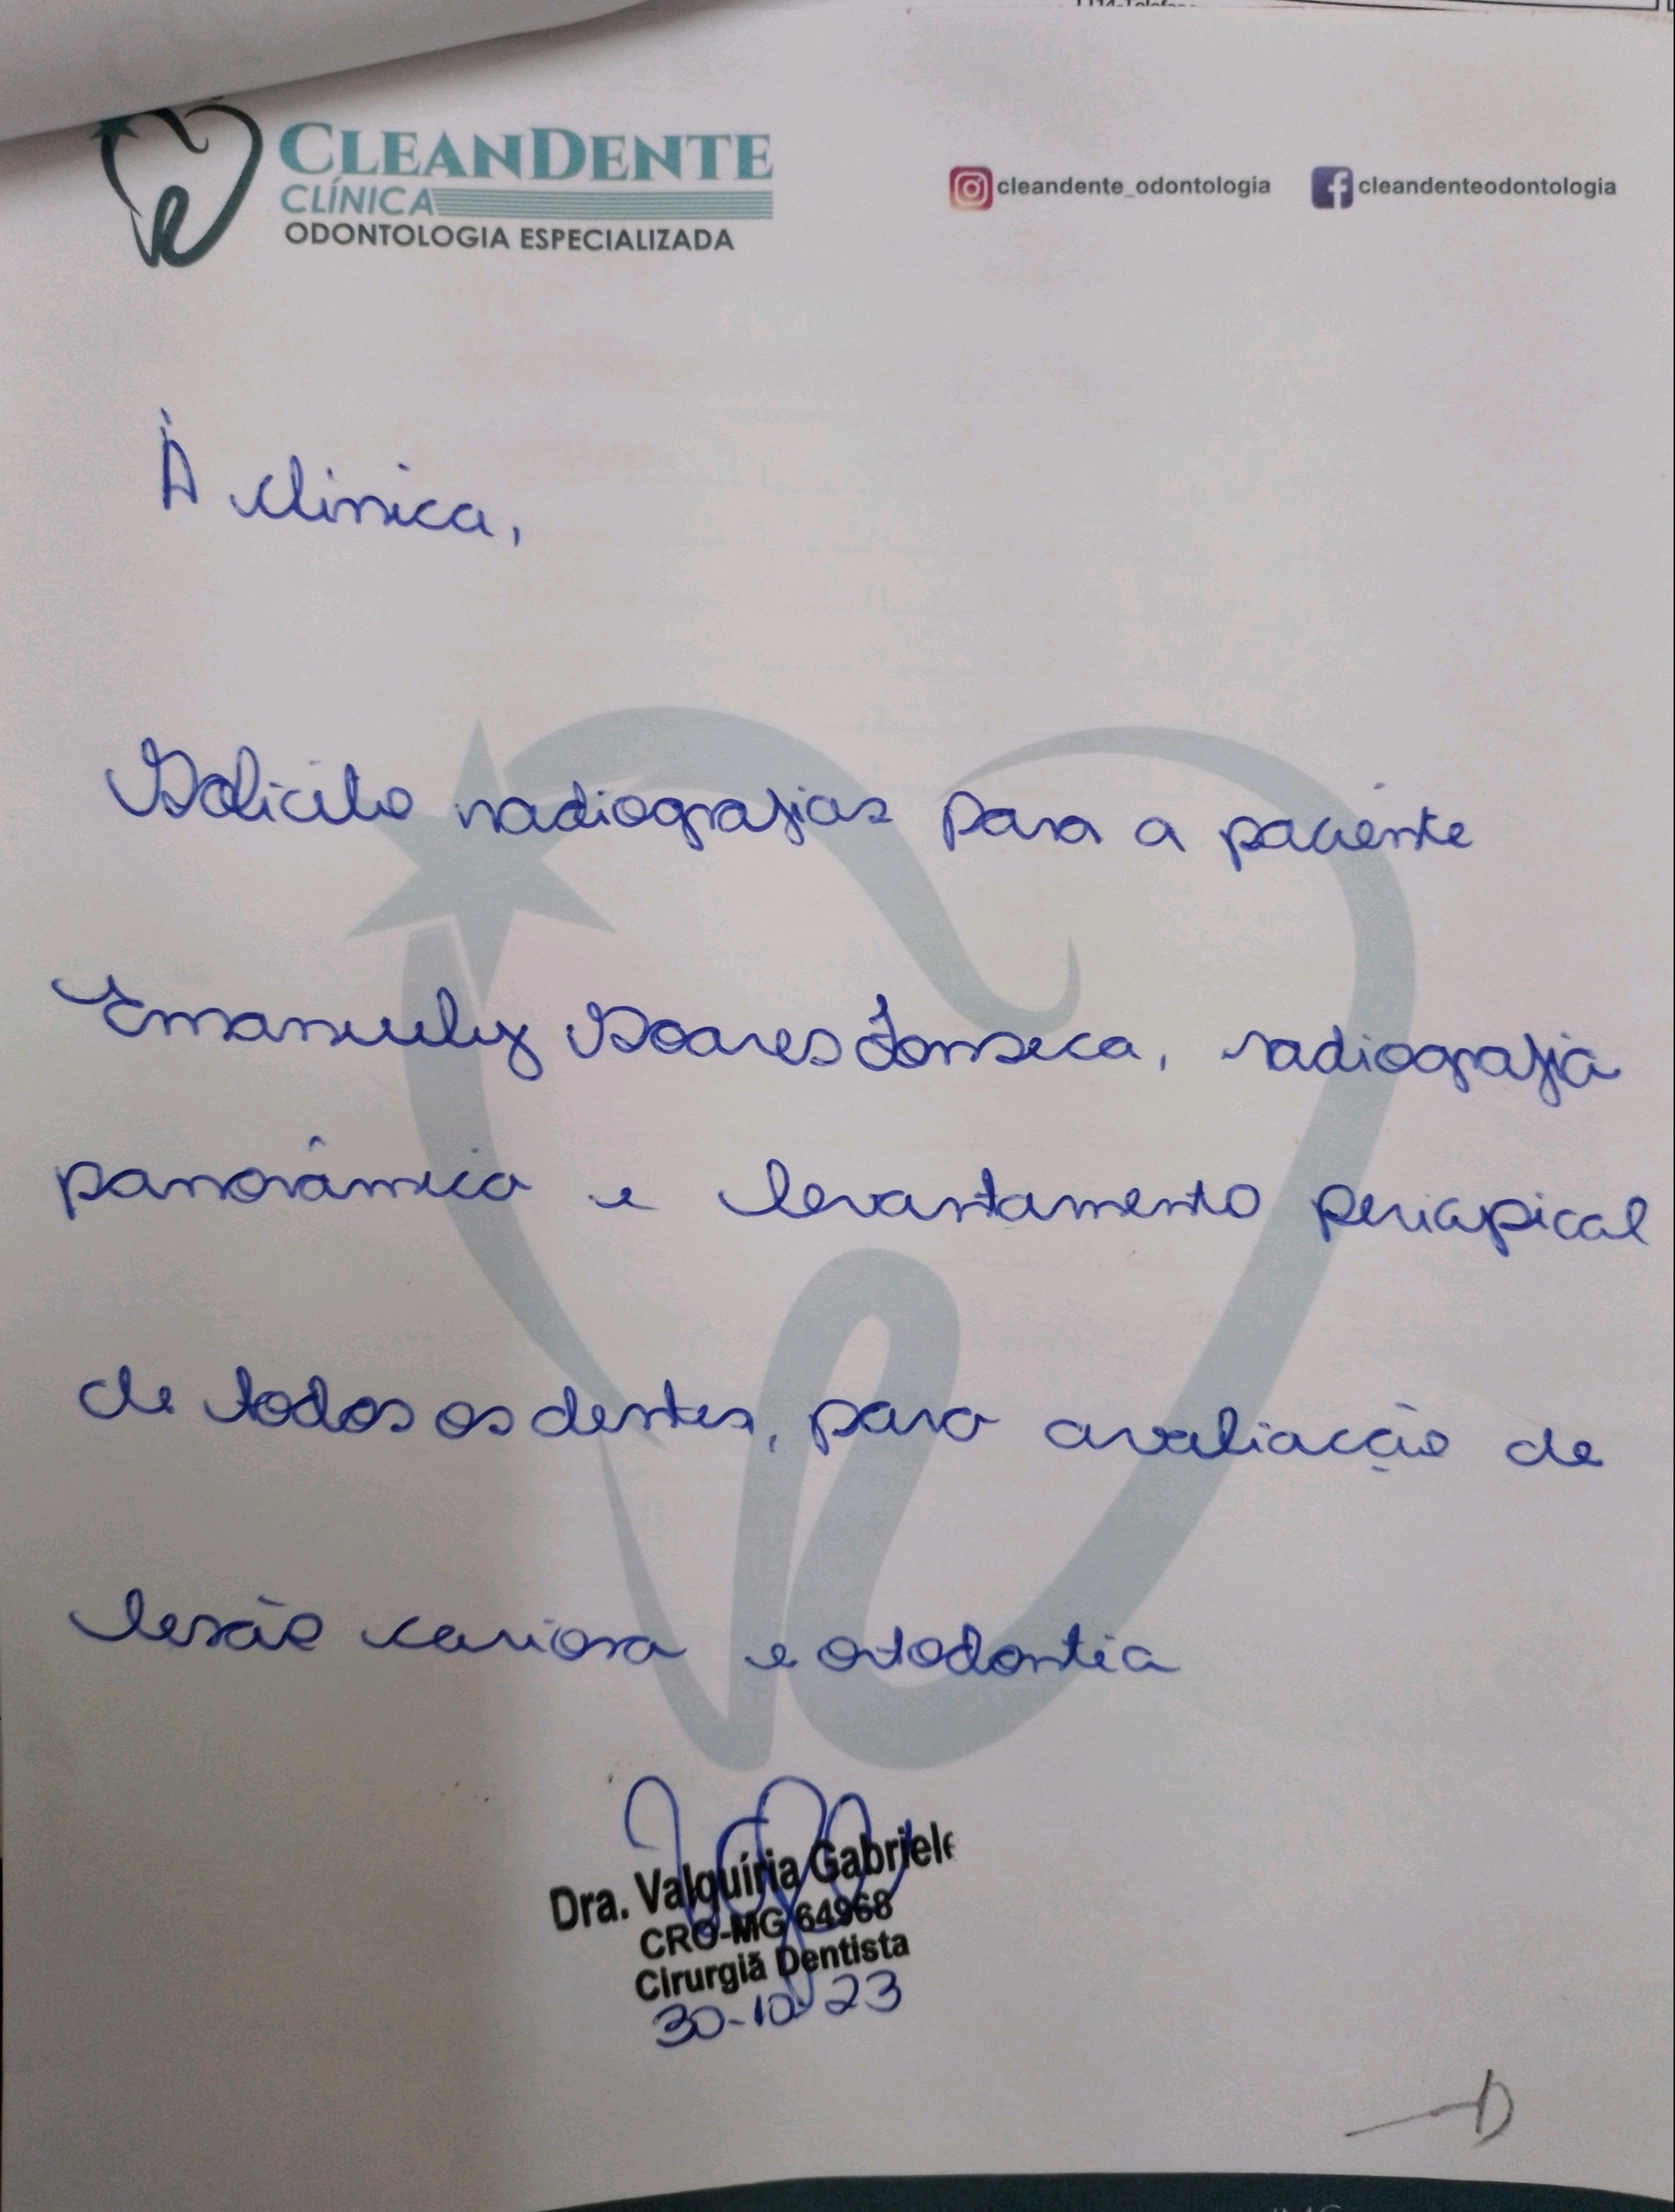 CLEANDENTE
CLÍNICA
ODONTOLOGIA ESPECIALIZADA
cleandente_odontologia cleandenteodontologia
À clinica,
Solicito radiografias para a paciente
Emanuely Soares Fonseca, radiografia
panorâmica e levantamento periapical
de todos os dentes, para avaliação de
lesão cariosa e ortodontia
Dra. Valquíria Gabriele
CRO-MG 64968
Cirurgiã Dentista
30-10-23